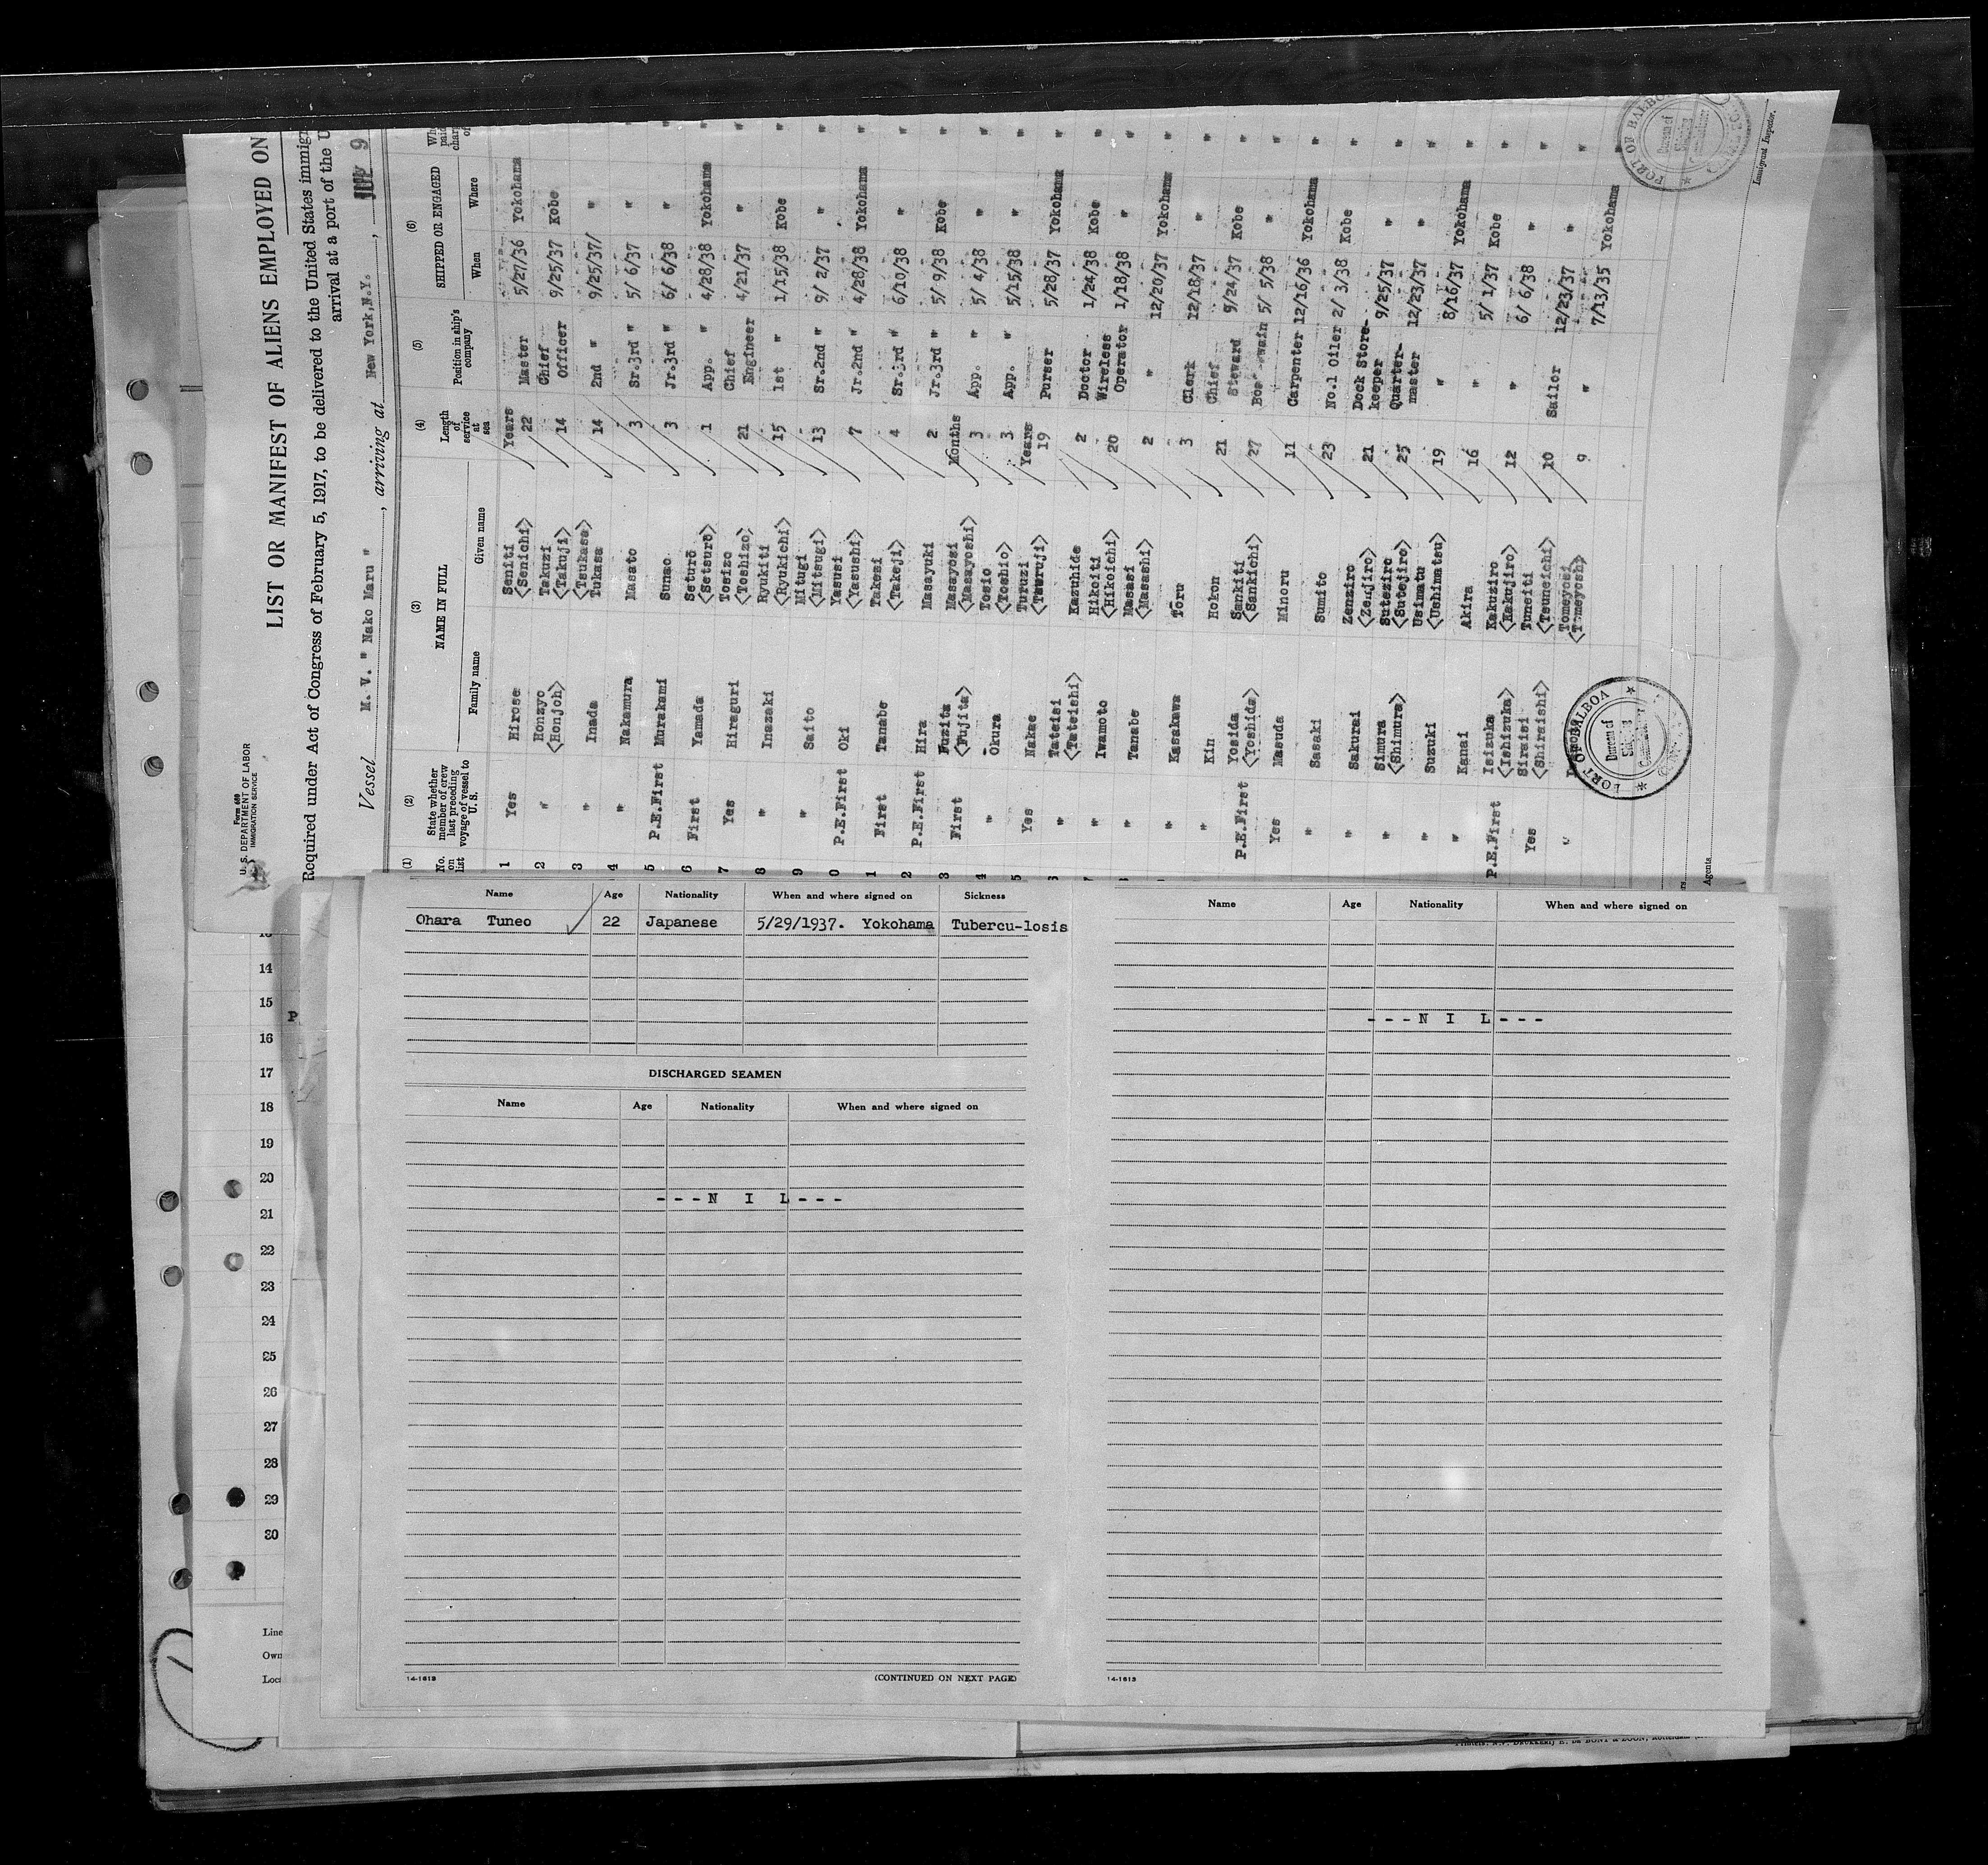 Form 689
U. S. DEPARTMENT OF LABOR
IMMIGRATION SERVICE
LIST OR MANIFEST OF ALIENS EMPLOYED ON
Required under Act of Congress of February 5, 1917, to be delivered to the United States immig
arrival at a port of the U
Vessel M. V. " Nako Maru " , arriving at New York, N.Y. , 9
(1) (2) (3) (4) (5) (6)
No. on list State whether member of crew last preceding voyage of vessel to U. S. NAME IN FULL Family name Given name Length of service at sea Position in ship's company SHIPPED OR ENGAGED When Where
1 Yes Hirose Seniti <Senichi> Years 22 Master 5/27/36 Yokohama "
2 " Honzyo <Honjoh> Takuzi <Takuji> 14 Chief Officer 9/25/37 Kobe "
3 " Inada <Tsukasa> Tukasa 14 2nd " 9/25/37/ " "
4 " Nakamura Masato 3 Sr.3rd " 5/ 6/37 " "
5 P.E.First Murakami Sunao 3 Jr.3rd " 6/ 6/38 " "
6 First Yamada Seturō <Setsurō> 1 App. " 4/28/38 Yokohama "
7 Yes Hiraguri Tosizo <Toshizo> 21 Chief Engineer 4/21/37 " "
8 " Inazaki Ryukiti <Ryukichi> 15 1st " 1/15/38 Kobe "
9 " Saito Mitugi <Mitsugi> 13 Sr.2nd " 9/ 2/37 " "
0 P.E.First Oki Yasusi <Yasushi> 7 Jr.2nd " 4/28/38 Yokohama "
1 First Tanabe Takesi <Takeji> 4 Sr.3rd " 6/10/38 " "
2 P.E.First Hira Masayuki 2 Jr.3rd " 5/ 9/38 Kobe "
3 First Fuzita <Fujita> Masayosi <Masayoshi> Months 3 App. " 5/ 4/38 " "
4 " Okura Tosio <Toshio> 3 App. " 5/15/38 " "
5 Yes Nakae Turuzi <Tsuruji> Years 19 Purser 5/28/37 Yokohama "
" Tateisi <Tateishi> Kazuhide 2 Doctor 1/24/38 Kobe "
" Iwamoto Hikoiti <Hikoichi> 20 Wireless Operator 1/18/38 " "
" Tanabe Masasi <Masashi> 2 " 12/20/37 Yokohama "
" Kasakawa Toru 3 Clerk 12/18/37 " "
" Kin Hokon 21 Chief Steward 9/24/37 Kobe "
P.E.First Yosida <Yoshida> Sankiti <Sankichi> 27 5/ 5/38 " "
Yes Masuda Minoru 11 Carpenter 12/16/36 Yokohama "
" Sasaki Sumito 23 No.1 Oiler 2/ 3/38 Kobe "
" Sakurai Zenziro <Zenjiro> 21 Deck Storekeeper 9/25/37 " "
" Simura <Shimura> Suteziro <Sutejiro> 25 Quartermaster 12/23/37 " "
" Suzuki Usimatu <Ushimatsu> 19 " 8/16/37 Yokohama "
" Kanai Akira 16 " 5/ 1/37 Kobe "
P.E.First Isizuka <Ishizuka> Kakuziro <Kakujiro> 12 " 6/ 6/38 " "
Yes Siraisi <Shiraishi> Tuneiti <Tsuneichi> 10 Sailor 12/23/37 " "
" Tomeyosi <Tomeyoshi> 9 " 7/13/35 Yokohama "
PORT OF BALBOA
Bureau of
PORT OF BALBOA
Bureau of
Immigrant Inspector.
Agents.
Name Age Nationality When and where signed on Sickness
Ohara Tuneo 22 Japanese 5/29/1937. Yokohama Tubercu-losis
DISCHARGED SEAMEN
Name Age Nationality When and where signed on
---N I L---
14-1613 (CONTINUED ON NEXT PAGE)
Name Age Nationality When and where signed on
---N I L---
14-1613
14
15
P
16
17
18
19
20
21
22
23
24
25
26
27
28
29
30
Line
Own
Loc